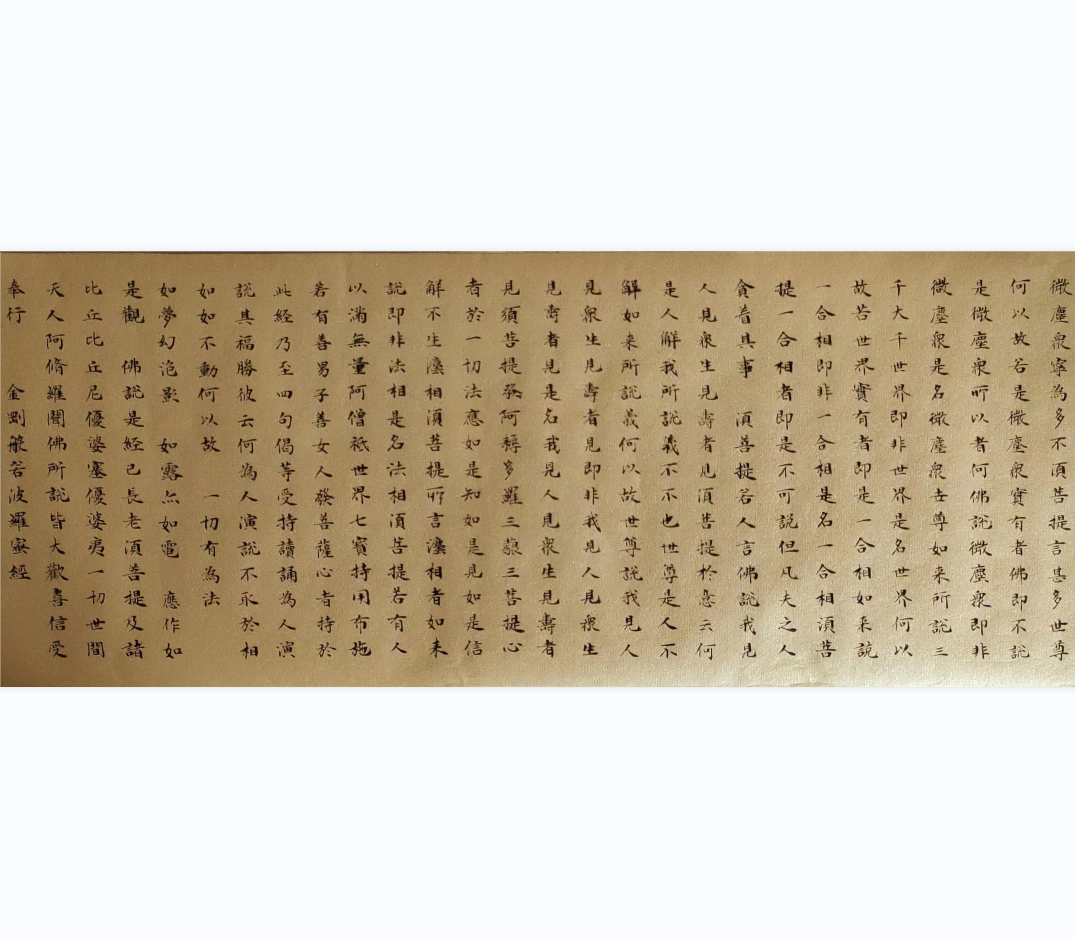 微塵衆寧為多不須菩提言甚多世尊
何以故若是微塵衆實有者佛即不說
是微塵衆所以者何佛說微塵衆即非
微塵衆是名微塵衆世尊如来所說三
千大千世界即非世界是名世界何以
故若世界實有者即是一合相如来說
一合相即非一合相是名一合相須菩
提一合相者即是不可說但凡夫之人
貪着其事 須菩提若人言佛說我見
人見衆生見壽者見須菩提於意云何
是人解我所說義不不也世尊是人不
解如来所說義何以故世尊說我見人
見衆生見壽者見即非我見人見衆生
見壽者見是名我見人見衆生見壽者
見須菩提發阿耨多羅三藐三菩提心
者於一切法應如是知如是見如是信
解不生灋相須菩提所言灋相者如来
說即非法相是名法相須菩提若有人
以滿無量阿僧祇世界七寶持用布施
若有善男子善女人發菩薩心者持於
此經乃至四句偈等受持讀誦為人演
說其福勝彼云何為人演說不取於相
如如不動何以故 一切有為法
如夢幻泡影 如露亦如電 應作如
是觀 佛說是經已長老須菩提及諸
比丘比丘尼優婆塞優婆夷一切世間
天人阿脩羅聞佛所說皆大歡喜信受
奉行 金剛般若波羅蜜經